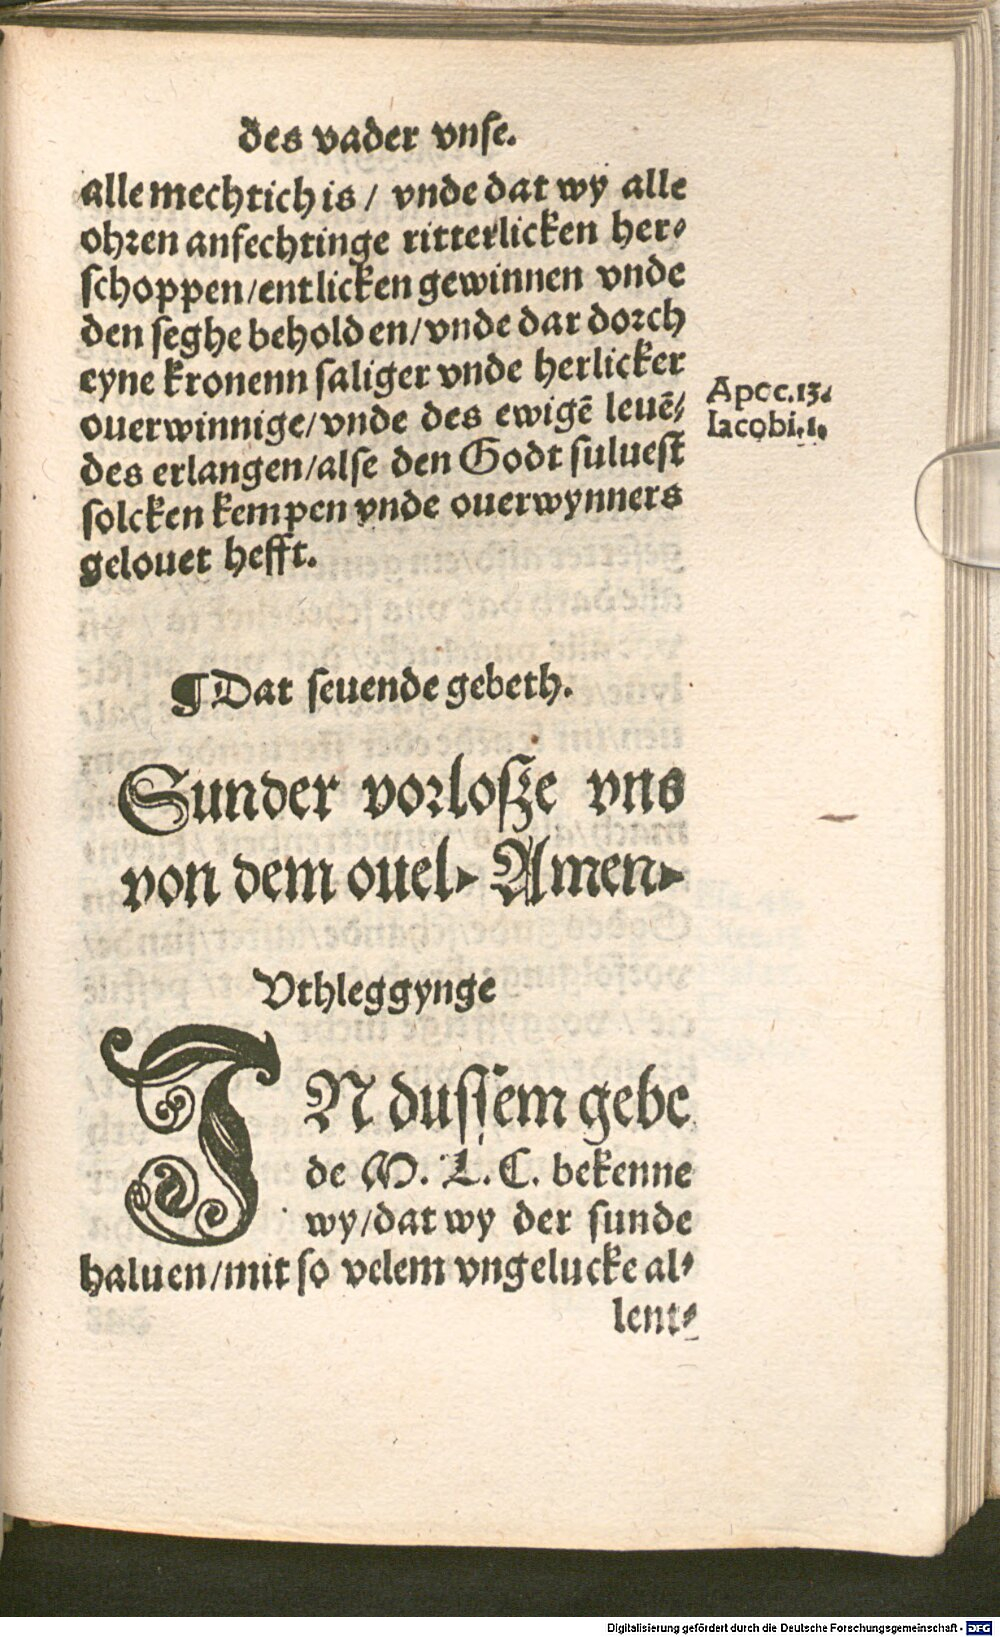 des vader vnse.
alle mechtich is / vnde dat wy alle
ohren anfechtinge ritterlicken her⸗
schoppen/entlicken gewinnen vnde
den seghe beholden/vnde dar dorch
eyne kronenn saliger vnde herlicker
ouerwinnige/vnde des ewigē leuē⸗
des erlangen/alse den Godt suluest
solcken kempen vnde ouerwynners
gelouet hefft.
Apoc.13.
Iacobi.1.
¶Dat seuende gebeth.
Sunder vorlosze vns
von dem ouel. Amen.
Vthleggynge
IN dussem gebe
de M. L. C. bekenne
wy/dat wy der sunde
haluen/mit so velem vngelucke al⸗
lent⸗
Digitalisierung gefördert durch die Deutsche Forschungsgemeinschaft - DFG